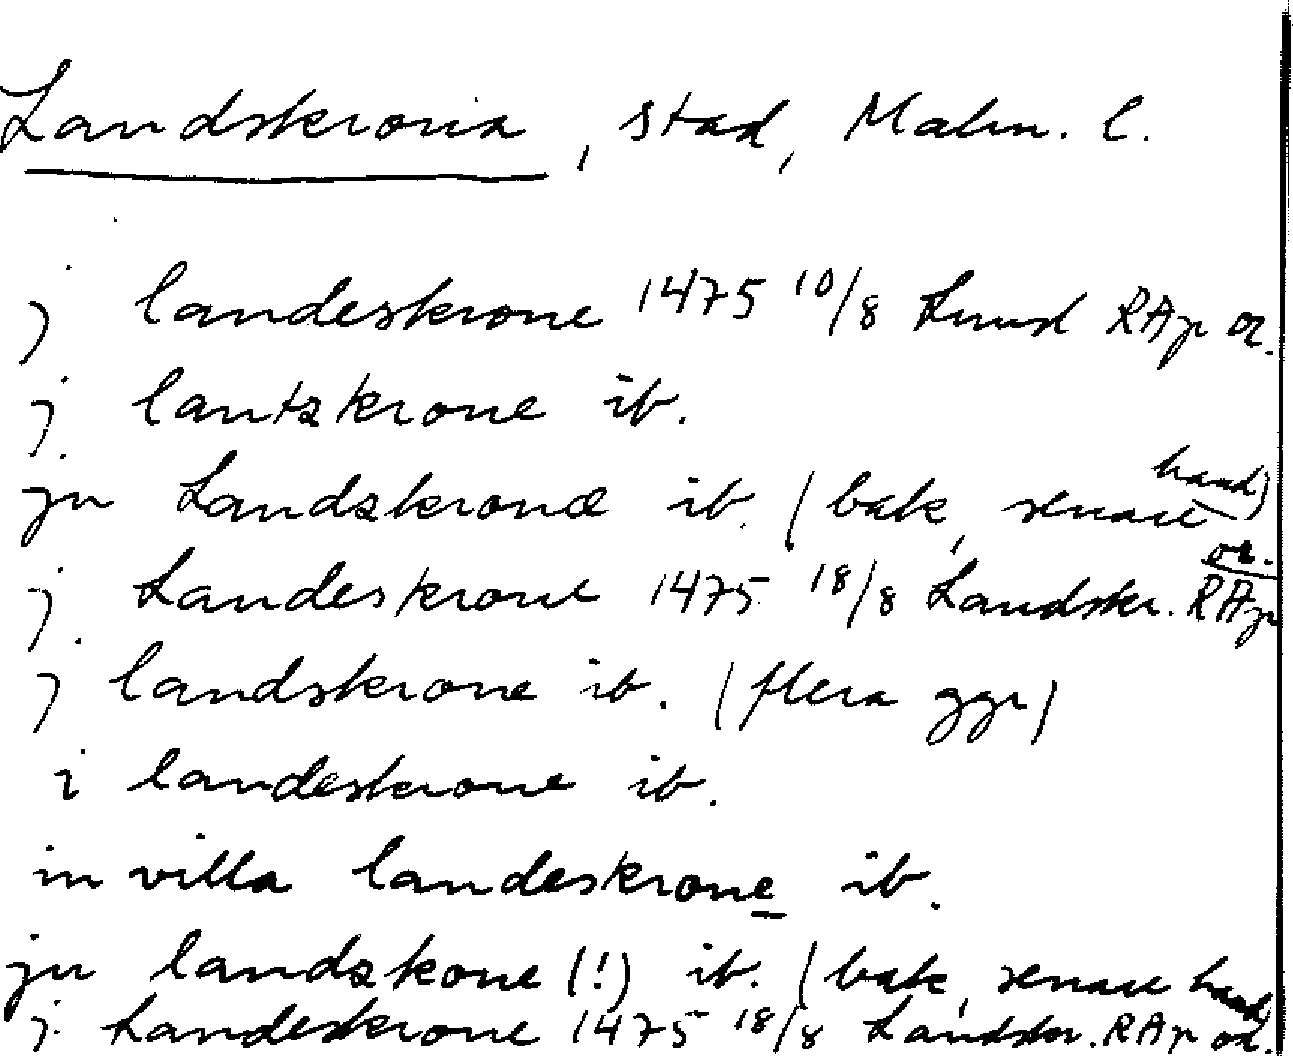 Landskrona, stad, Malm. l.
j landeskrone 1475 10/8 Lund RAp or.
j lantzkrone ib.
jn Landzkronæ ib. (bak, senare hand)
j Landeskrone 1475 18/8 Landskr. RAp or.
j landskrone ib. (flera ggr)
i landeskrone ib.
in villa landeskrone ib.
jn landzkone (!) ib. (bak, senare hand)
j Landeskrone 1475 18/8 Landskr. RAp or.